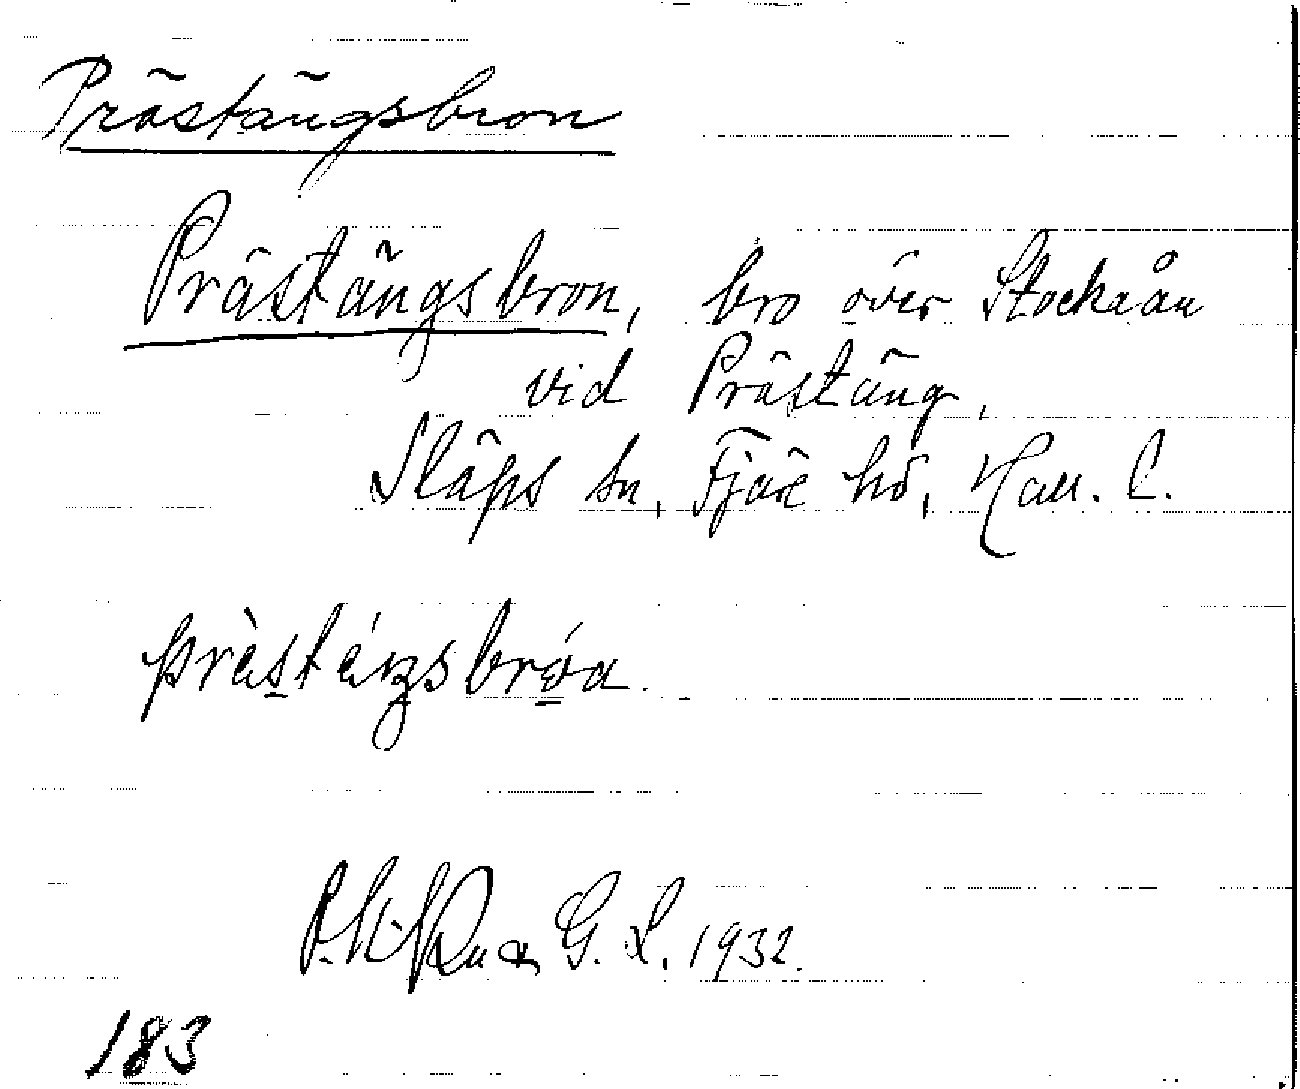 Prästängsbron
Prästängsbron, bro över Stockaån
vid Prästäng,
Släps sn, Fjäre hd, Hall. l.
prästäŋsbróa.
G. L. 1932.
183